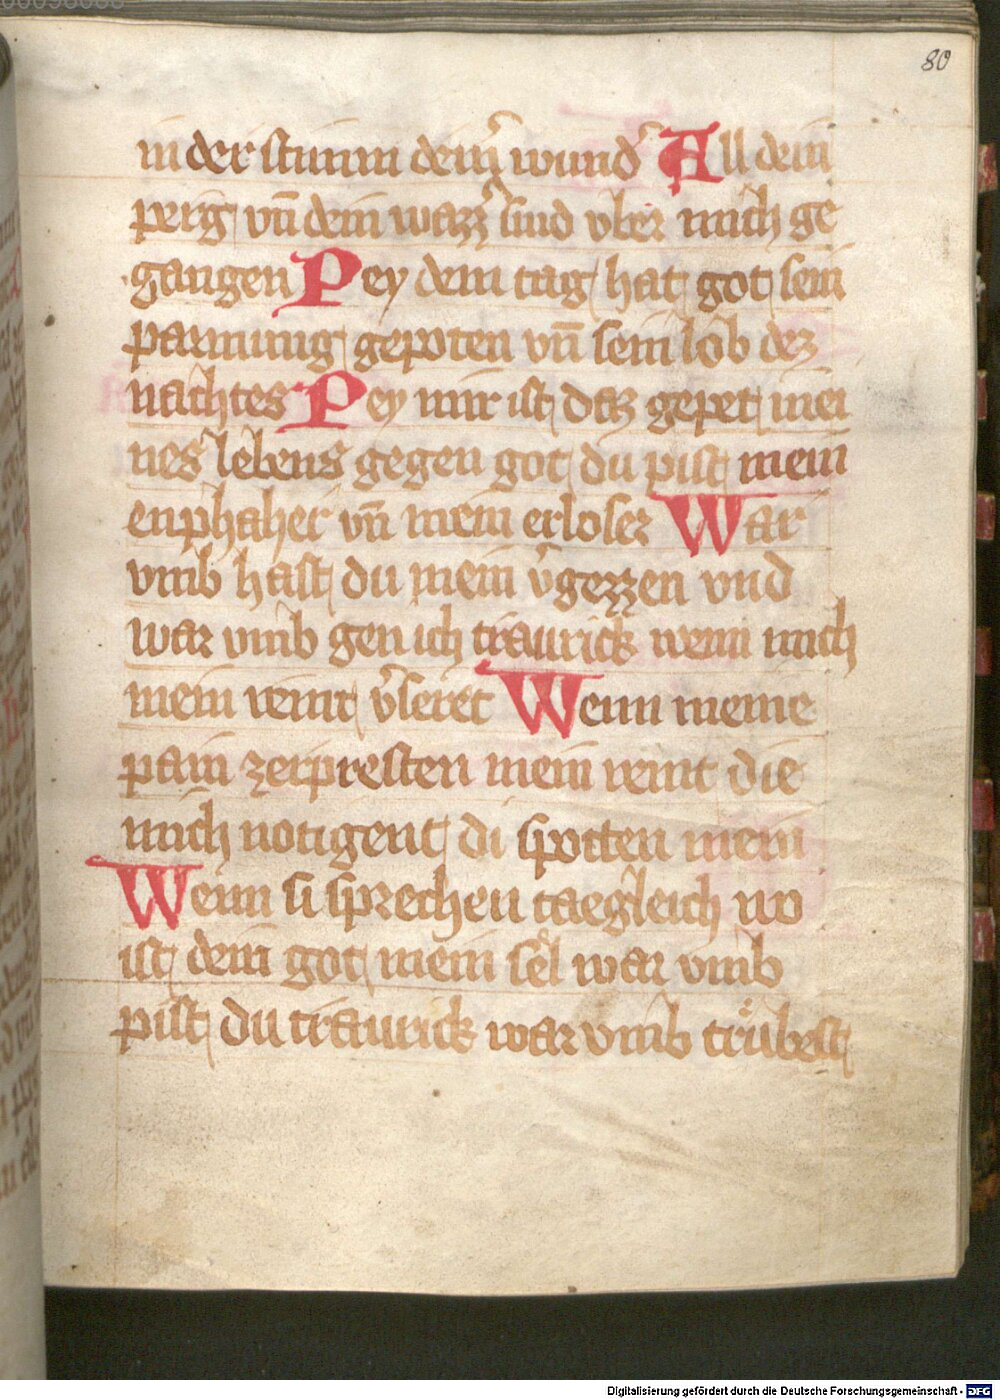 80
in der stimm deinˀ wundˀ All dein
perg vn̄ dein wazzˀ sind vber mich ge
gangen Pey dem tag hat got sein
parmung gepoten vn̄ sein lob dez
nachtes Pey mir ist daz gepet mei
nes lebens gegen got du pist mein
enphaher vn̄ mein erloser War
vmb hast du mein v̾gezzen vnd
war vmb gen ich traurick wenn mich
mein veint v̾seret Wenn meine
pain zerpresten mein veint die
mich notigent di spotten mein
Wenn si sprechen taegleich wo
ist dein got mein sel war vmb
pist du traurick war vmb trübest
Digitalisierung gefördert durch die Deutsche Forschungsgemeinschaft - DFG